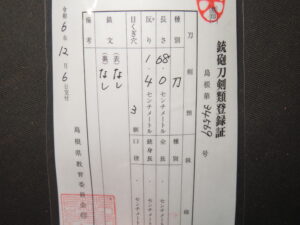 銃砲刀剣類登録証
島根第
号
刀剣類
種別 刀
長さ 68.0 センチメートル
反り 1.4 センチメートル
目くぎ穴 3 個
銘文 (表) なし
(裏) なし
備考
種別
全長 センチメートル
銃身長 センチメートル
口径 センチメートル
令和6年12月6日交付
島根県教育委員会